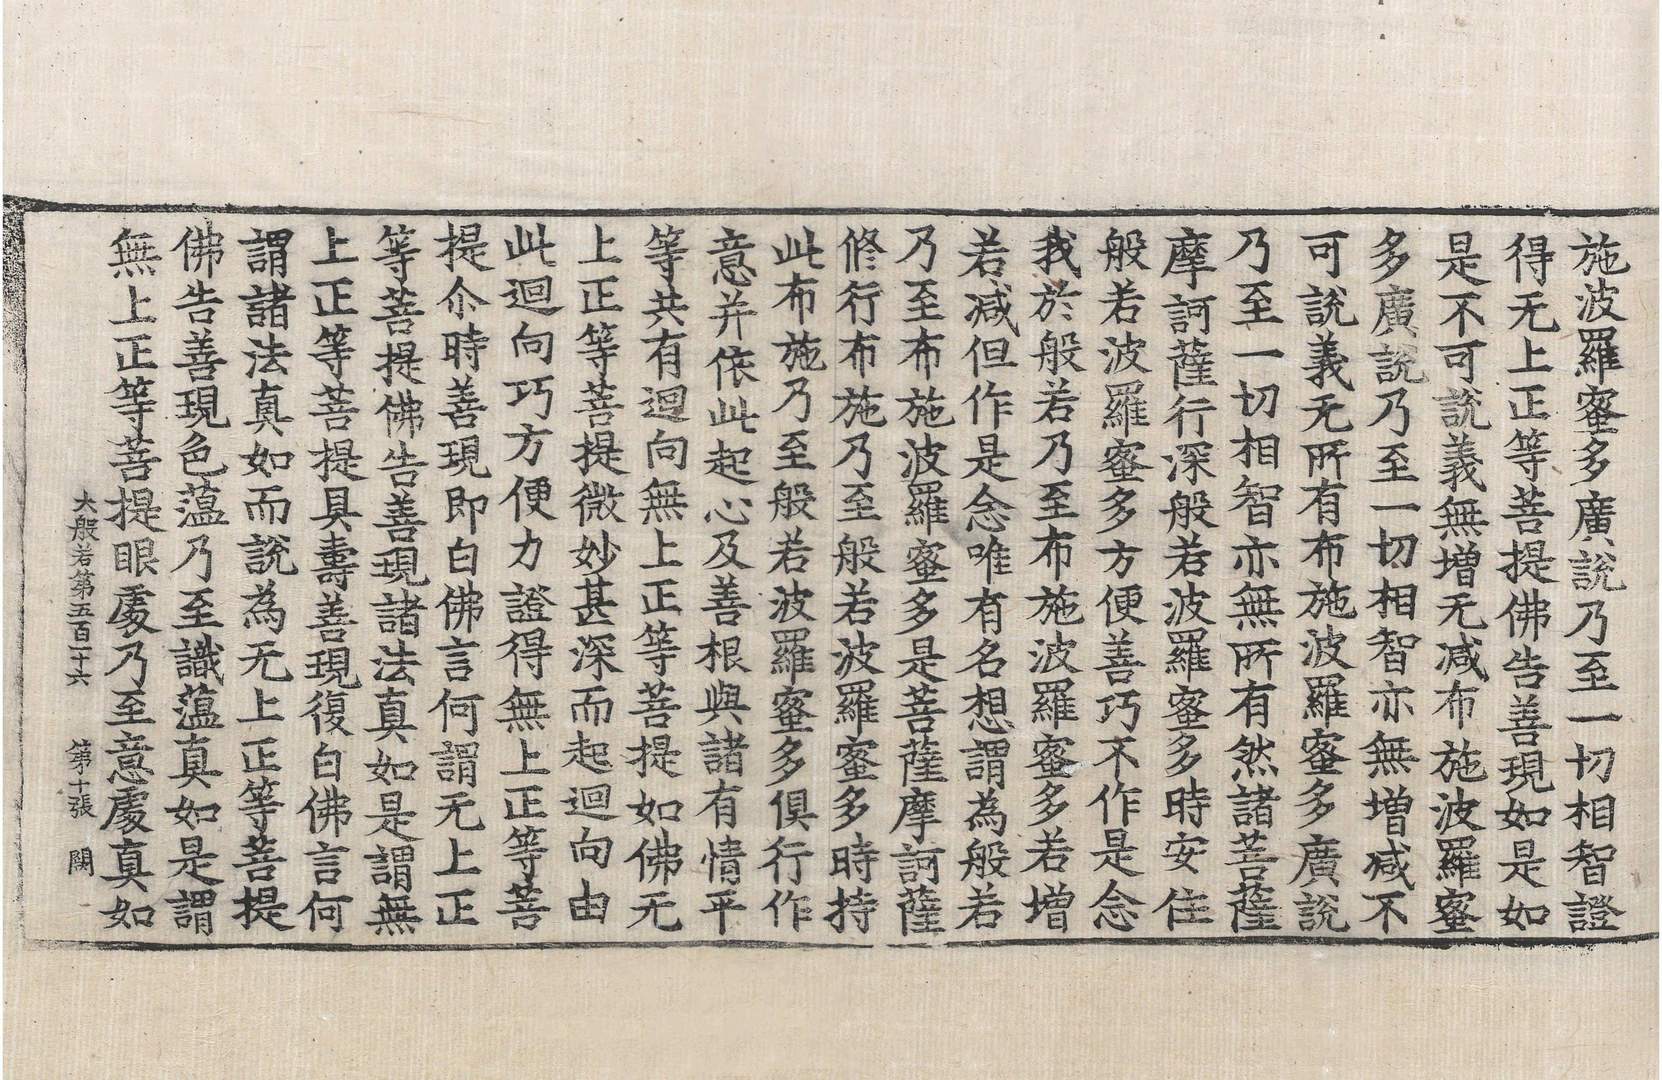 施波羅蜜多廣說乃至一切相智證
得无上正等菩提佛告善現如是如
是不可說義無增无减布施波羅蜜
多廣說乃至一切相智亦無增减不
可說義无所有布施波羅蜜多廣說
乃至一切相智亦無所有然諸菩薩
摩訶薩行深般若波羅蜜多時安住
般若波羅蜜多方便善巧不作是念
我於般若乃至布施波羅蜜多若增
若减但作是念唯有名想謂為般若
乃至布施波羅蜜多是菩薩摩訶薩
修行布施乃至般若波羅蜜多時持
此布施乃至般若波羅蜜多俱行作
意并依此起心及善根與諸有情平
等共有迴向無上正等菩提如佛无
上正等菩提微妙甚深而起迴向由
此迴向巧方便力證得無上正等菩
提尒時善現即白佛言何謂无上正
等菩提佛告善現諸法真如是謂無
上正等菩提具壽善現復白佛言何
謂諸法真如而說為无上正等菩提
佛告善現色薀乃至識薀真如是謂
無上正等菩提眼處乃至意處真如
大般若第五百一十六 第十張 闕